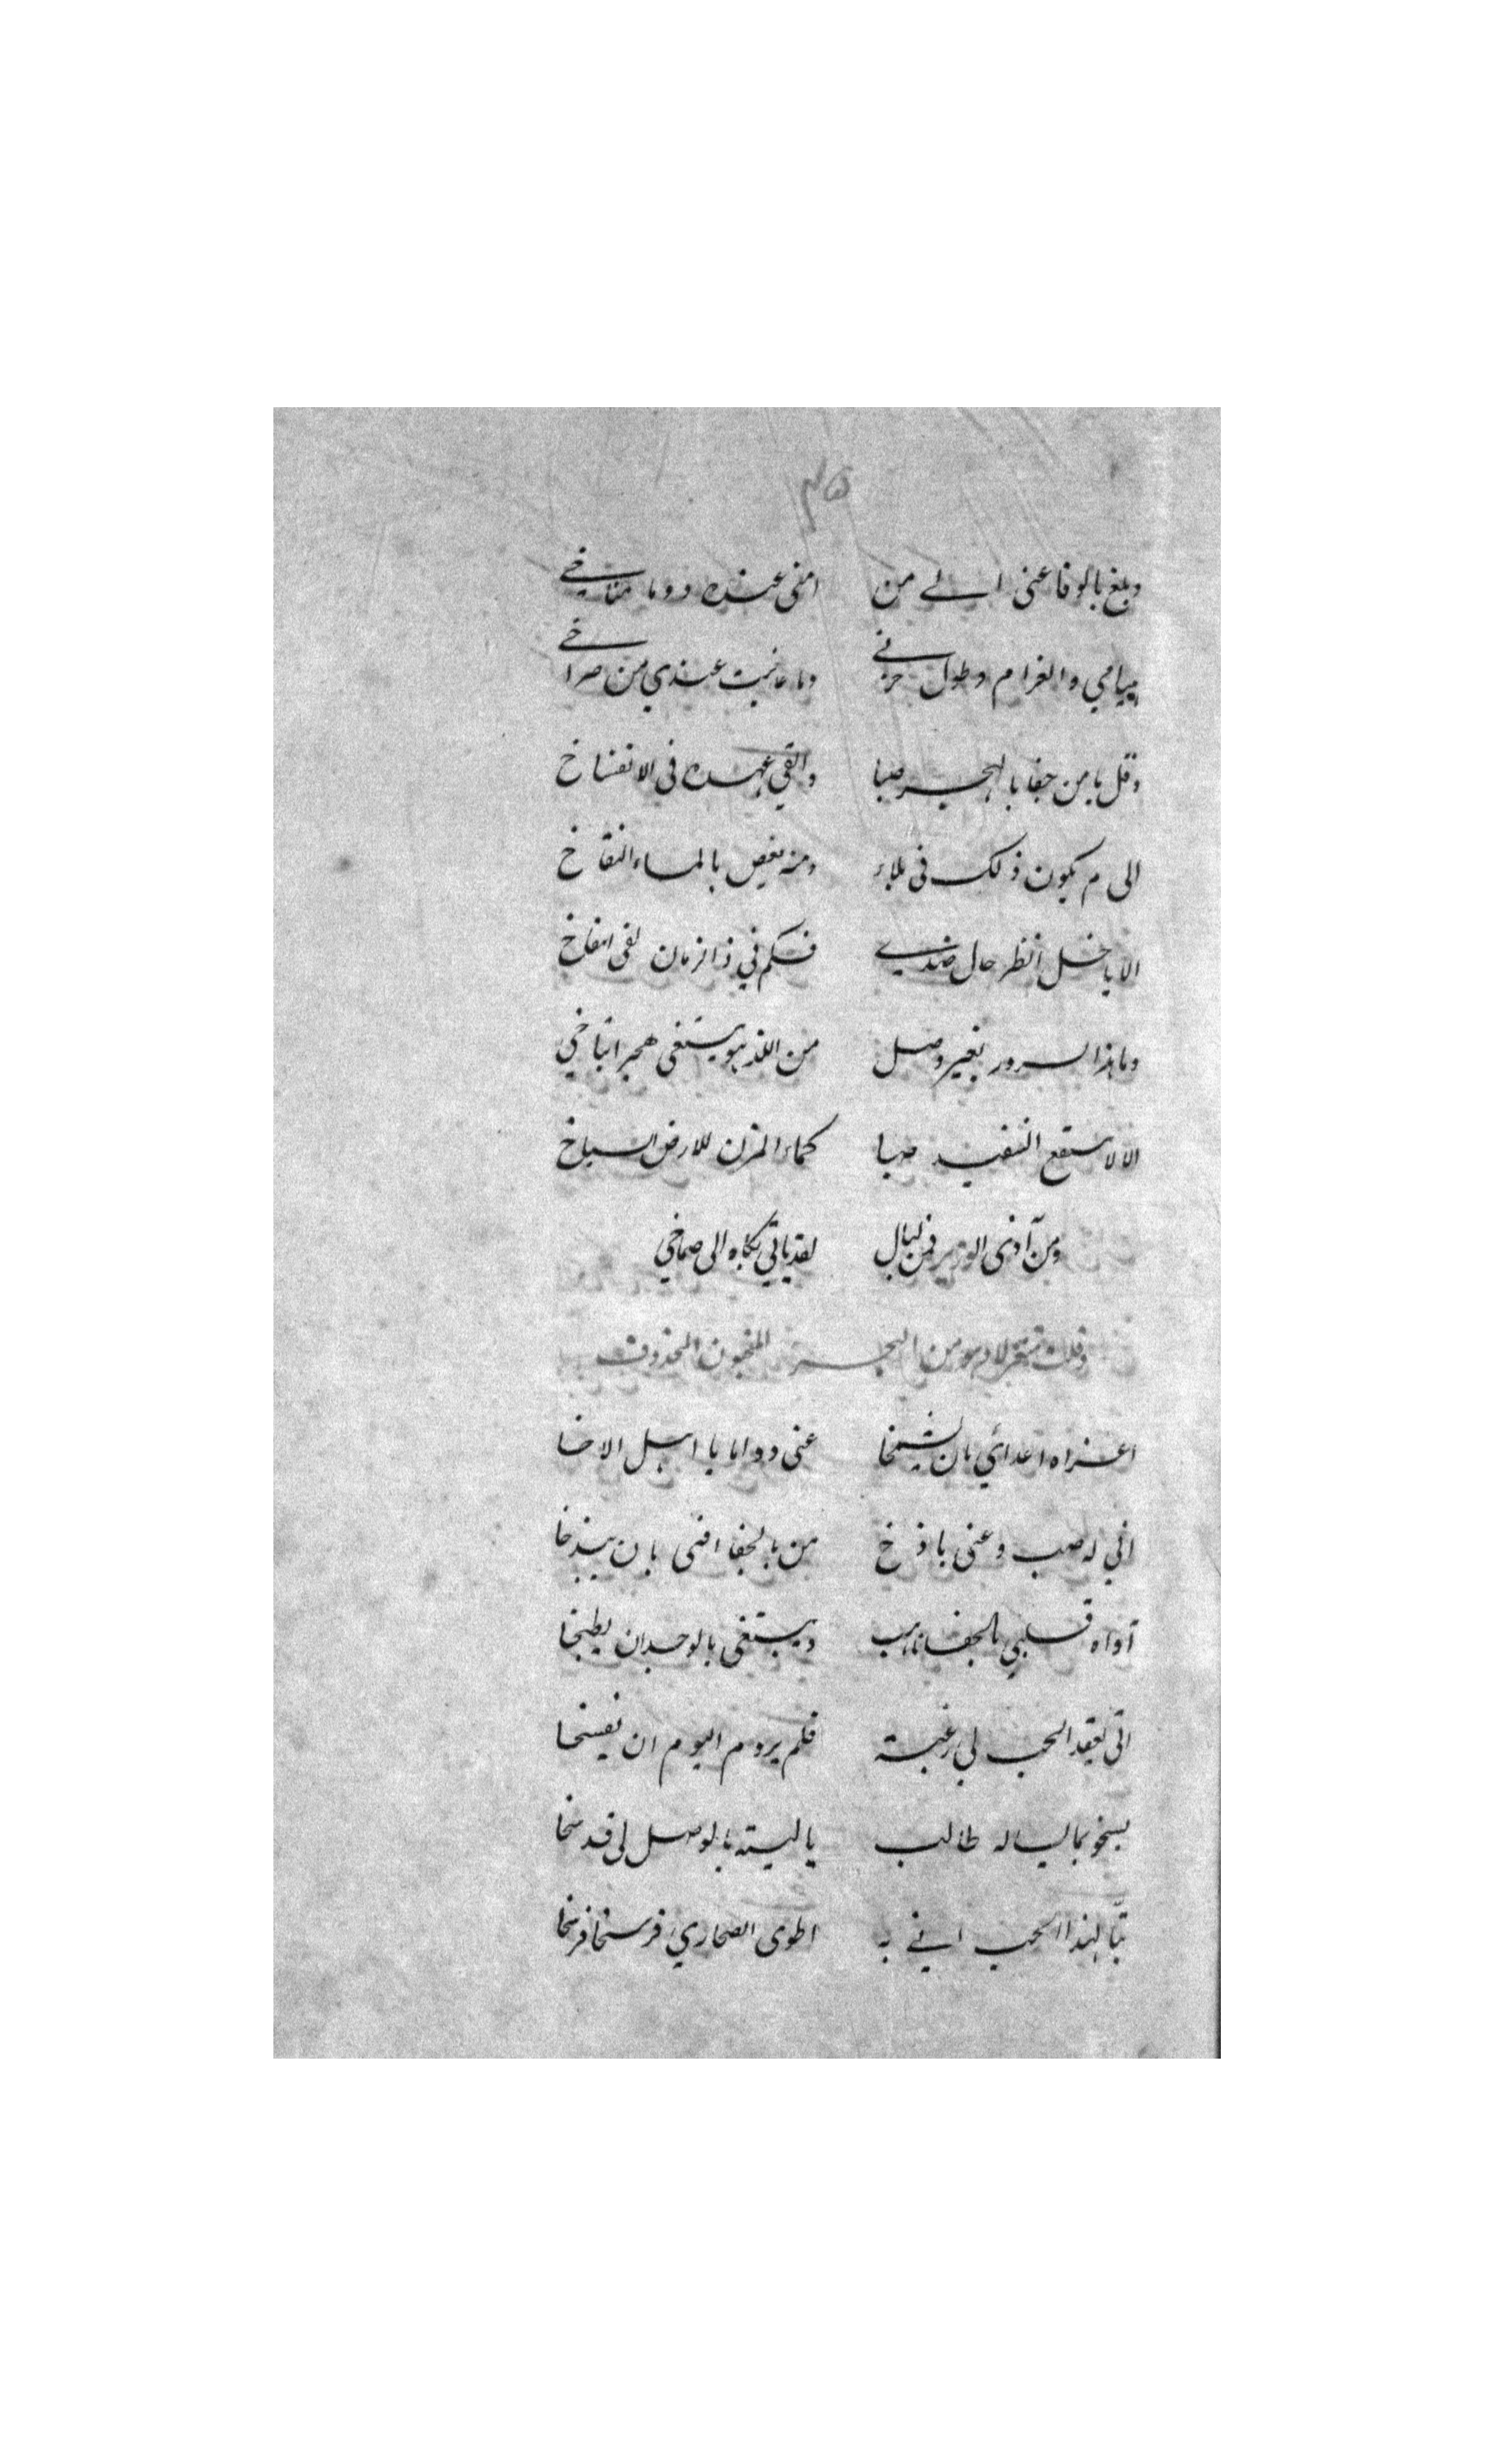 وبلغ بالوفا عنى الى من امنى عنده دوما مناخى
هيامي والغرام وطول حزنى وما عاينت عندي من صراخى
وقل يا من جفا بالهجر صبا والقي عهده فى الانفساخ
الى م يكون ذلك فى بلاء ومنه يغص بالماء النقاخ
الا يا خل انظر حال ضدى فكم في ذا الزمان لقى انتفاخ
وما هذا السرور بغير وصل من اللذ هو يبتغى هجر انتاخي
الا لا ينتفع التفنيد صبا كماء المزن للارض السباخ
ومن آذى الوزير فمن ليال لقد ياتي بكاه الى صماخي
وقلت متغزلا وهو من البحر المخبون المحذوف
اغراه اعدائي بان يشمخا عنى دواما يا اهيل الاخا
اني له صب وعنى باذخ من بالجفا افتى بان يبذخا
آواه قلبي بالجفا ناهب ويبتغى بالوجدان يطبخا
اتى بعقد الحب لي رغبة فلم يروم اليوم ان يفسخا
يسخو بما ليس له طالب يا ليته بالوصل لى قد سخا
تبّا لهذا الحب انى به اطوى الصحاري فرسخا فرسخا